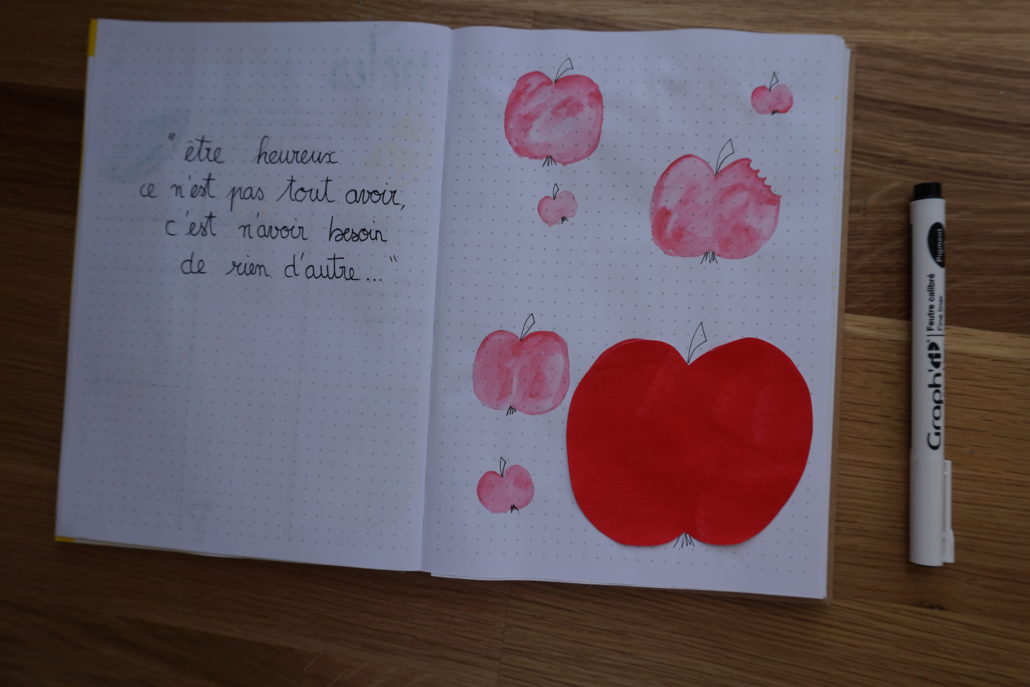 "être heureux
ce n'est pas tout avoir,
c'est n'avoir besoin
de rien d'autre..."
Graph'it
Feutre calibré
Fine liner
Pigment